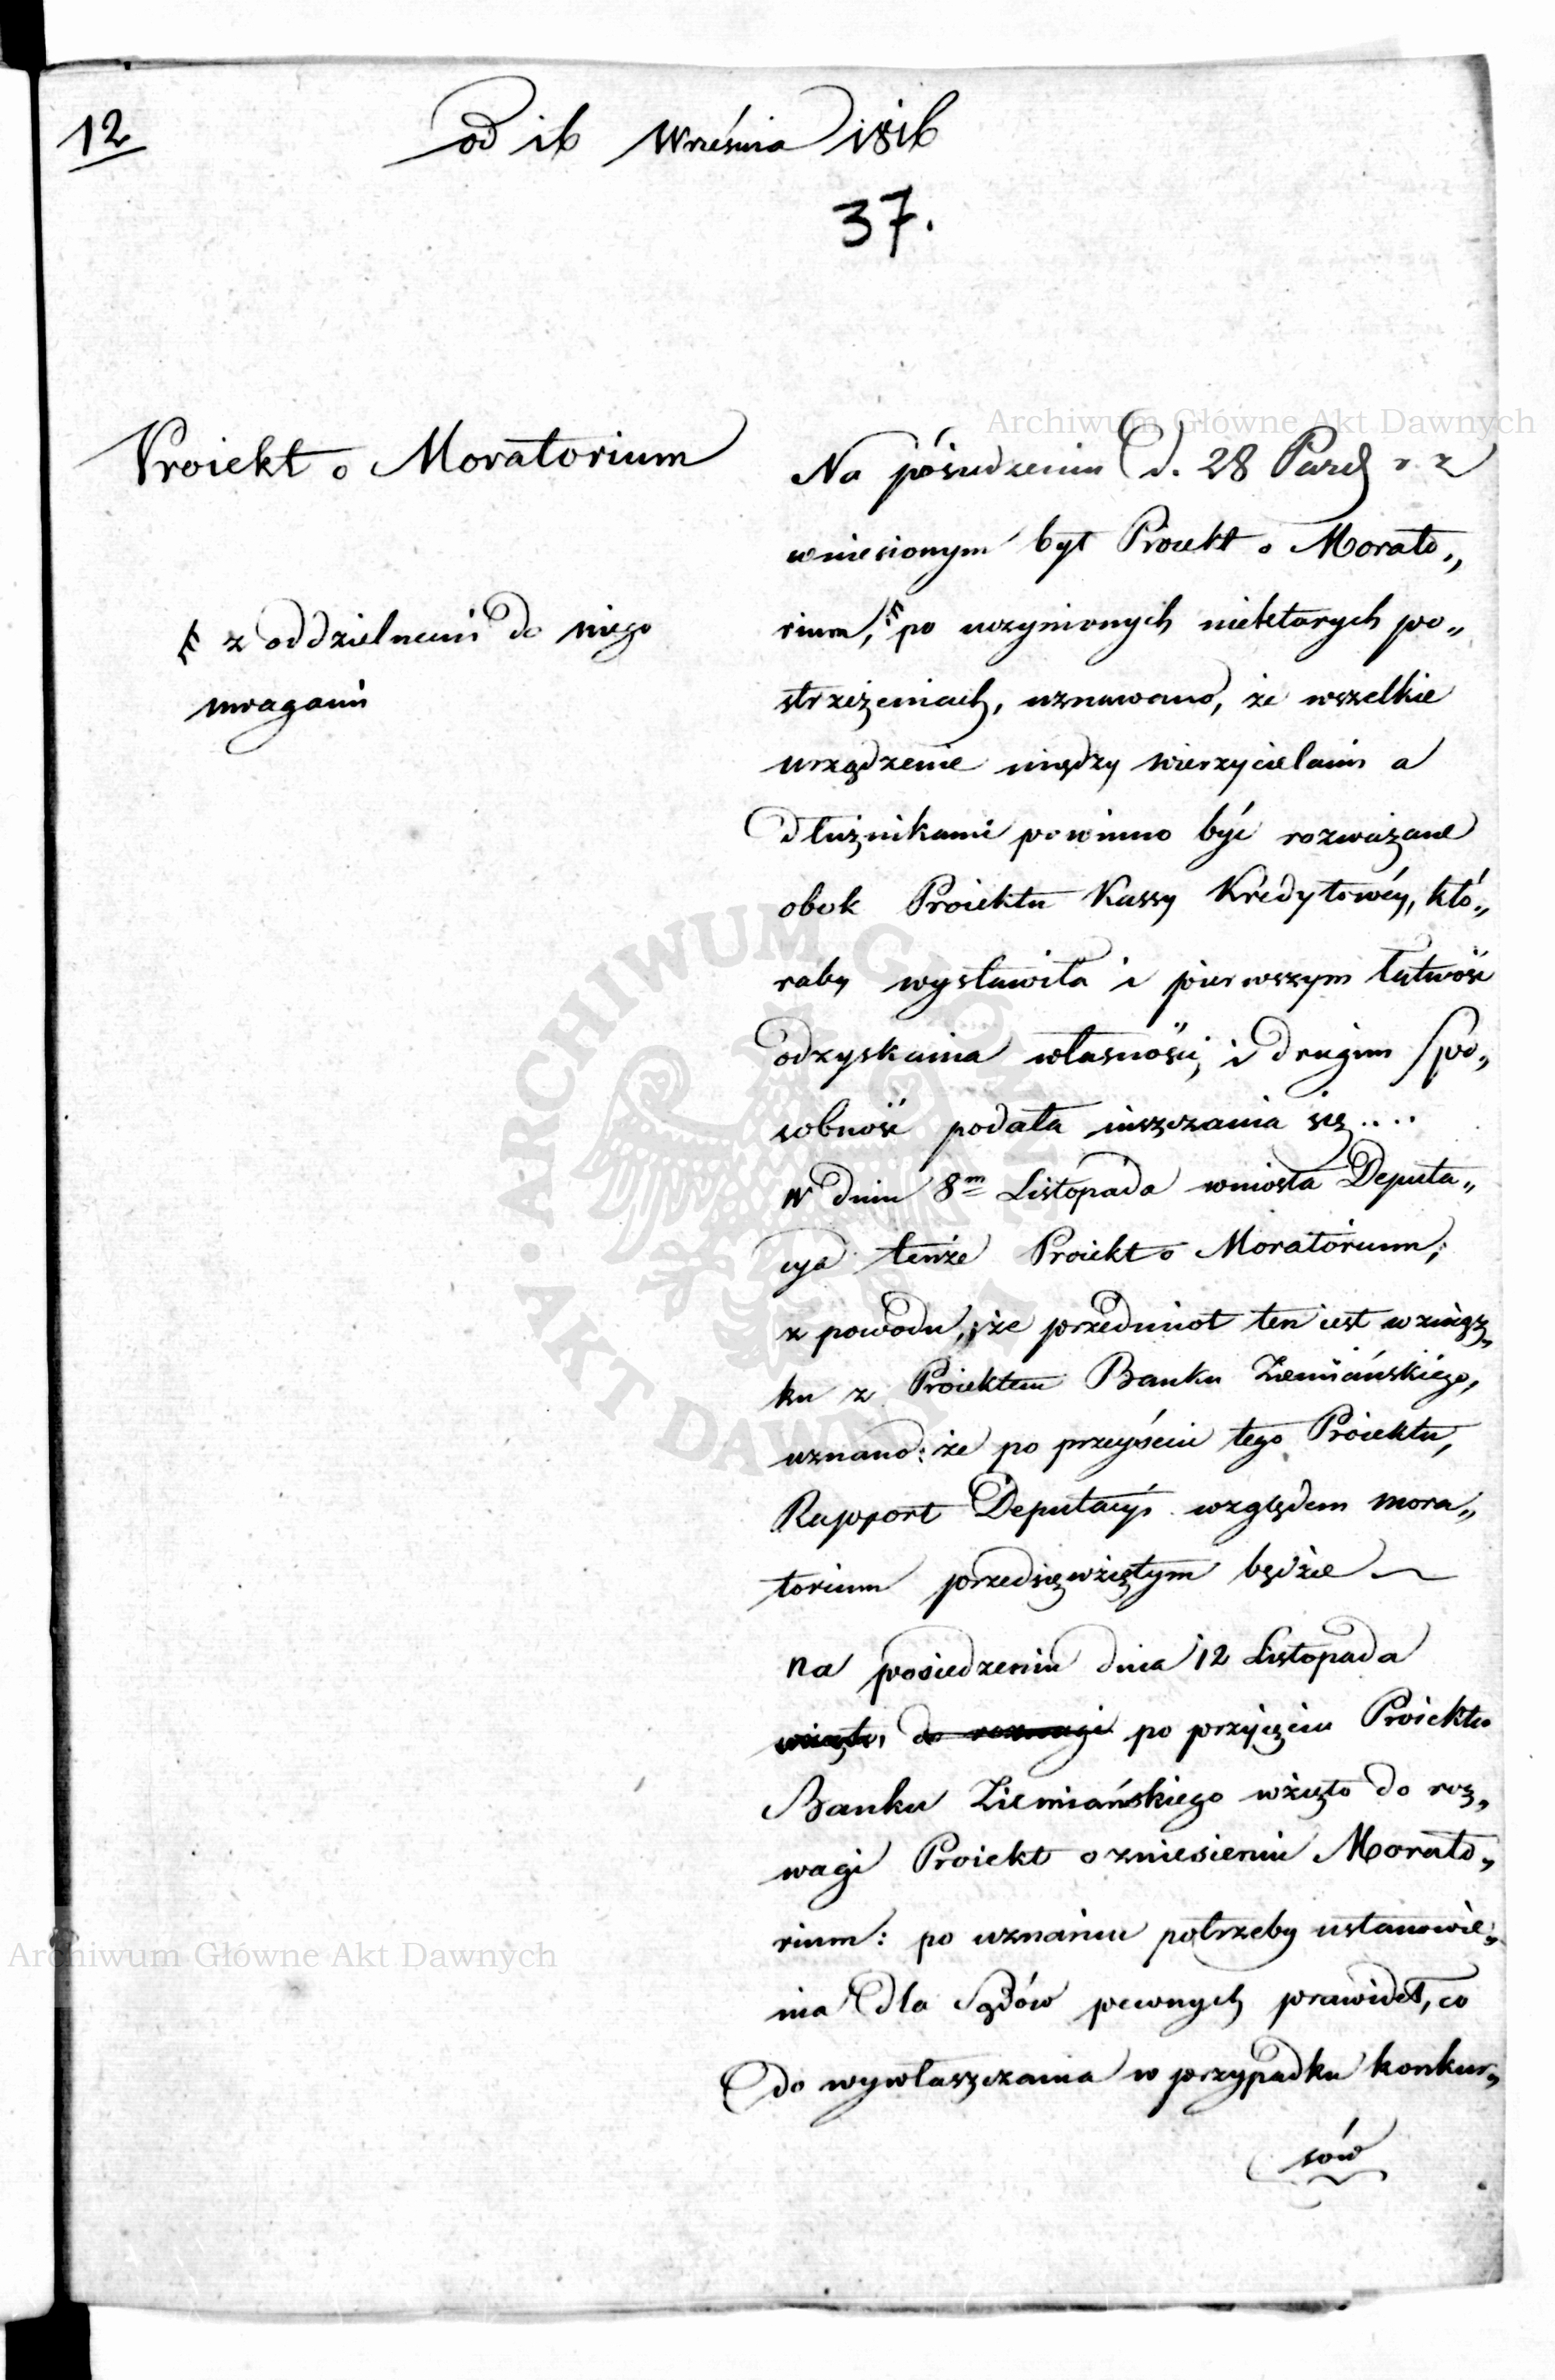 12
od 16 Września 1816
37.
Proiekt o Moratorium
# z oddzielnemi do niego
uwagami
Na posiedzeniu d. 28 Pazd. r. z
wniesionym był Proiekt o Morato„
rium, # po uczynionych niektorych po„
strzeżeniach, uznawano, że wszelkie
urządzenie między wierzycielami a
dłużnikami powinno być rozważane
obok Proiektu Kassy Kredytowéy, któ„
raby wystawiła i pierwszym łatwość
odzyskania własności, i drugim spo„
sobność podała uiszczania się....
W dniu 8m Listopada wniosła Deputa„
cya tenże Proiekt o Moratorium;
z powodu, że przedmiot ten iest w związ„
ku z Proiektem Banku Ziemiańskiego,
uznano: że po przeyściu tego Proiektu,
Rapport Deputacyi względem mora„
torium przedsięwziętym będzie
na posiedzeniu dnia 12 Listopada
wzięto do rozwagi po przyięciu Proiektu
Banku Ziemiańskiego wzięto do roz„
wagi Proiekt o zniesieniu Morato„
rium: po uznaniu potrzeby ustanowie„
nia dla Sądów pewnych prawideł, co
do wywłaszczania w przypadku konkur„
sów
Archiwum Główne Akt Dawnych
Archiwum Główne Akt Dawnych
ARCHIWUM GŁÓWNE AKT DAWNYCH